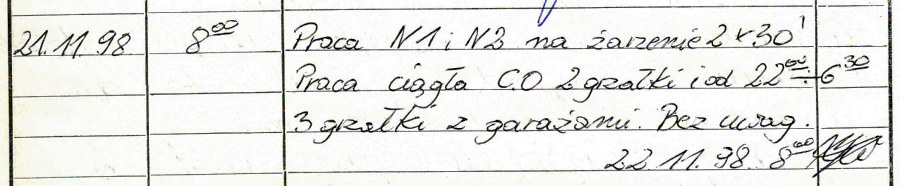 21.11.98 8⁰⁰ Praca N1 i N2 na żarzenie 2 x 30'
Praca ciągła C.O 2 grzałki i od 22⁰⁰ ÷ 6³⁰
3 grzałki z garażami. Bez uwag.
22.11.98. 8⁰⁰